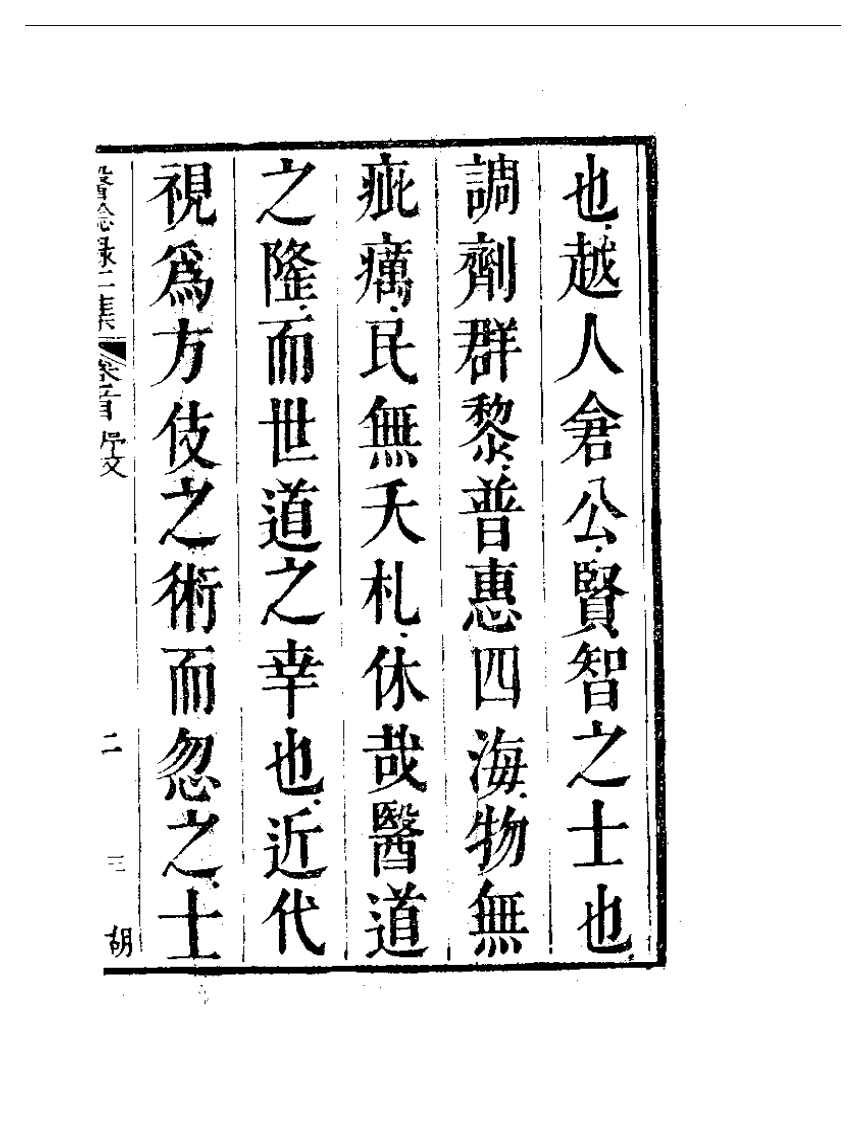 也越人倉公賢智之士也
調劑群黎普惠四海物無
疵癘民無夭札休哉醫道
之隆而世道之幸也近代
視爲方伎之術而忽之士
醫驗錄二集 卷首 序文 二 三 胡